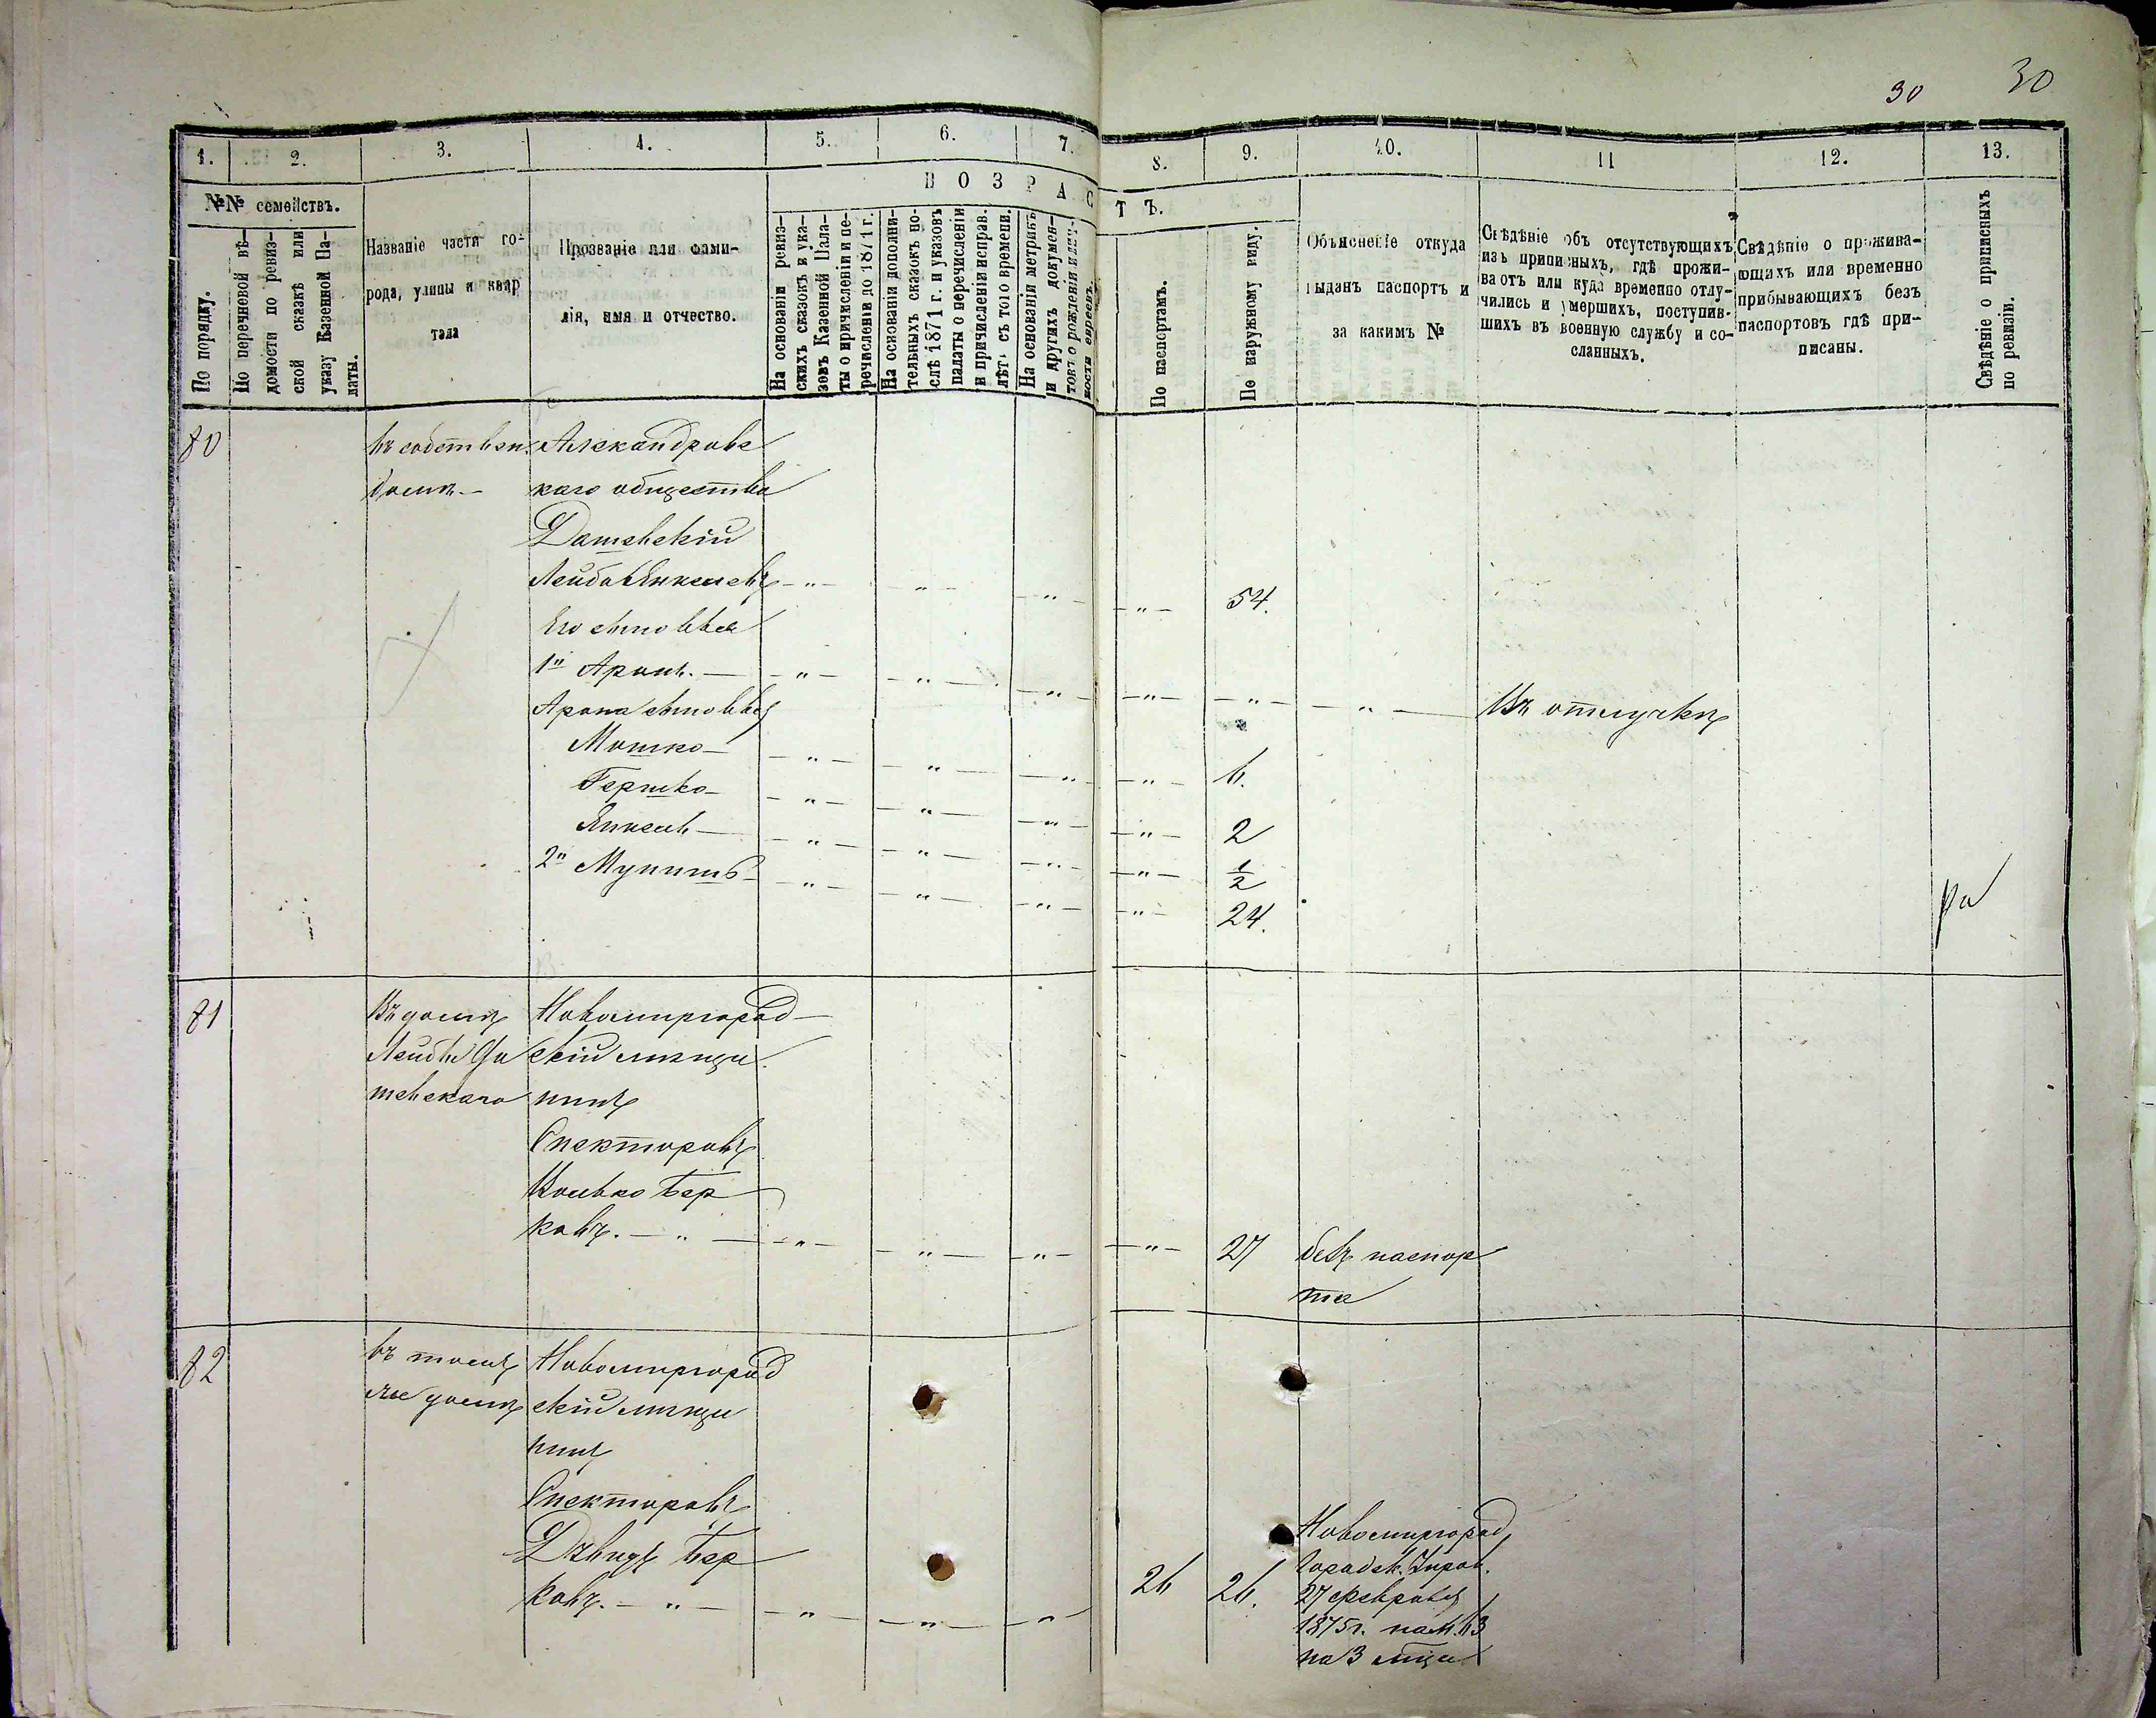 30 30
1. 2. 3. 4. 5. 6. 7. 8. 9. 10. 11 12. 13.
№№ семействъ.
По порядку.
По перечневой вѣ-
домости по ревиз-
ской сказкѣ или
указу Казенной Па-
латы.
Названіе части го-
рода, улицы и квар
тала
Прозваніе или фами-
лія, имя и отчество.
ВОЗРАСТЪ.
На основаніи ревиз-
скихъ сказокъ и ука-
зовъ Казенной Пала-
ты о причисленіи и пе-
речисленіи до 1871 г.
На основаніи дополни-
тельныхъ сказокъ по-
слѣ 1871 г. и указовъ
палаты о перечисленіи
и причисленіи исправ.
лѣтъ съ того времени.
На основаніи метрикъ
и другихъ докумен-
товъ о рожденіи
евреевъ.
По паспортамъ.
По наружному виду.
Объясненіе откуда
выданъ паспортъ и
за какимъ №
Свѣдѣніе объ отсутствующихъ
изъ приписныхъ, гдѣ прожи-
ваютъ или куда временно отлу-
чились и умершихъ, поступив-
шихъ въ военную службу и со-
сланныхъ.
Свѣдѣніе о прожива-
ющихъ или временно
прибывающихъ безъ
паспортовъ гдѣ при-
писаны.
Свѣдѣніе о приписныхъ
по ревизіи.
80 въ собствен. Александровс
домѣ – каго общества
Дашевскій
Лейба Янкелевъ – " – – " – – " – – " – 54.
Его сыновья
1" Аронъ. – – " – – " – – " – – " – – " – – " – Въ отлучкѣ
Арона сыновья
Мошко – – " – – " – – " – – " – 6.
Гершко – – " – – " – – " – – " – 2
Янкель – – " – – " – – " – – " – ½
2" Мунишъ – " – – " – – " – – " – 24.
81 Въ домѣ Новомиргород –
Лейбы Да скій мѣща
шевскаго нинъ
Спекторовъ
Волько Бер
ковъ. – " – – " – – " – – " – – " – 27 безъ паспор
та
82 въ томъ Новомиргород
же домѣ скій мѣща
нинъ
Спекторовъ
Давидъ Бер
ковъ. – " – – " – – " – – " – 26 26.
Новомиргород
Городск. Управ.
27 февраля
1875 г. за №. 63
на 3 мѣца